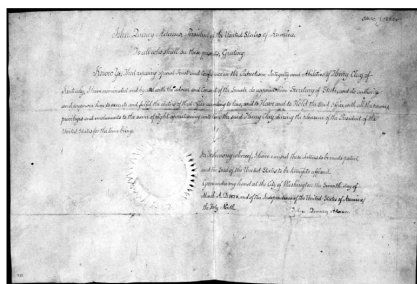 John Quincy Adams, President of the United States of America,
To all who shall see these presents, Greeting:
Know Ye, That reposing special Trust and Confidence in the Patriotism, Integrity and Abilities of Henry Clay, of
Kentucky, I have nominated, and by and with the advice and consent of the Senate do appoint him Secretary of State, and do authorize
and empower him to execute and fulfil the duties of that Office according to law; and to Have and to Hold the said Office, with all the powers,
privileges and emoluments to the same of right appertaining unto him the said Henry Clay, during the pleasure of the President of the
United States for the time being.
In testimony whereof, I have caused these Letters to be made patent,
and the Seal of the United States to be hereunto affixed.
Given under my hand at the City of Washington the seventh day of
March A.D. and of the Independence of the United States of America,
the Forty Ninth.
John Quincy Adams